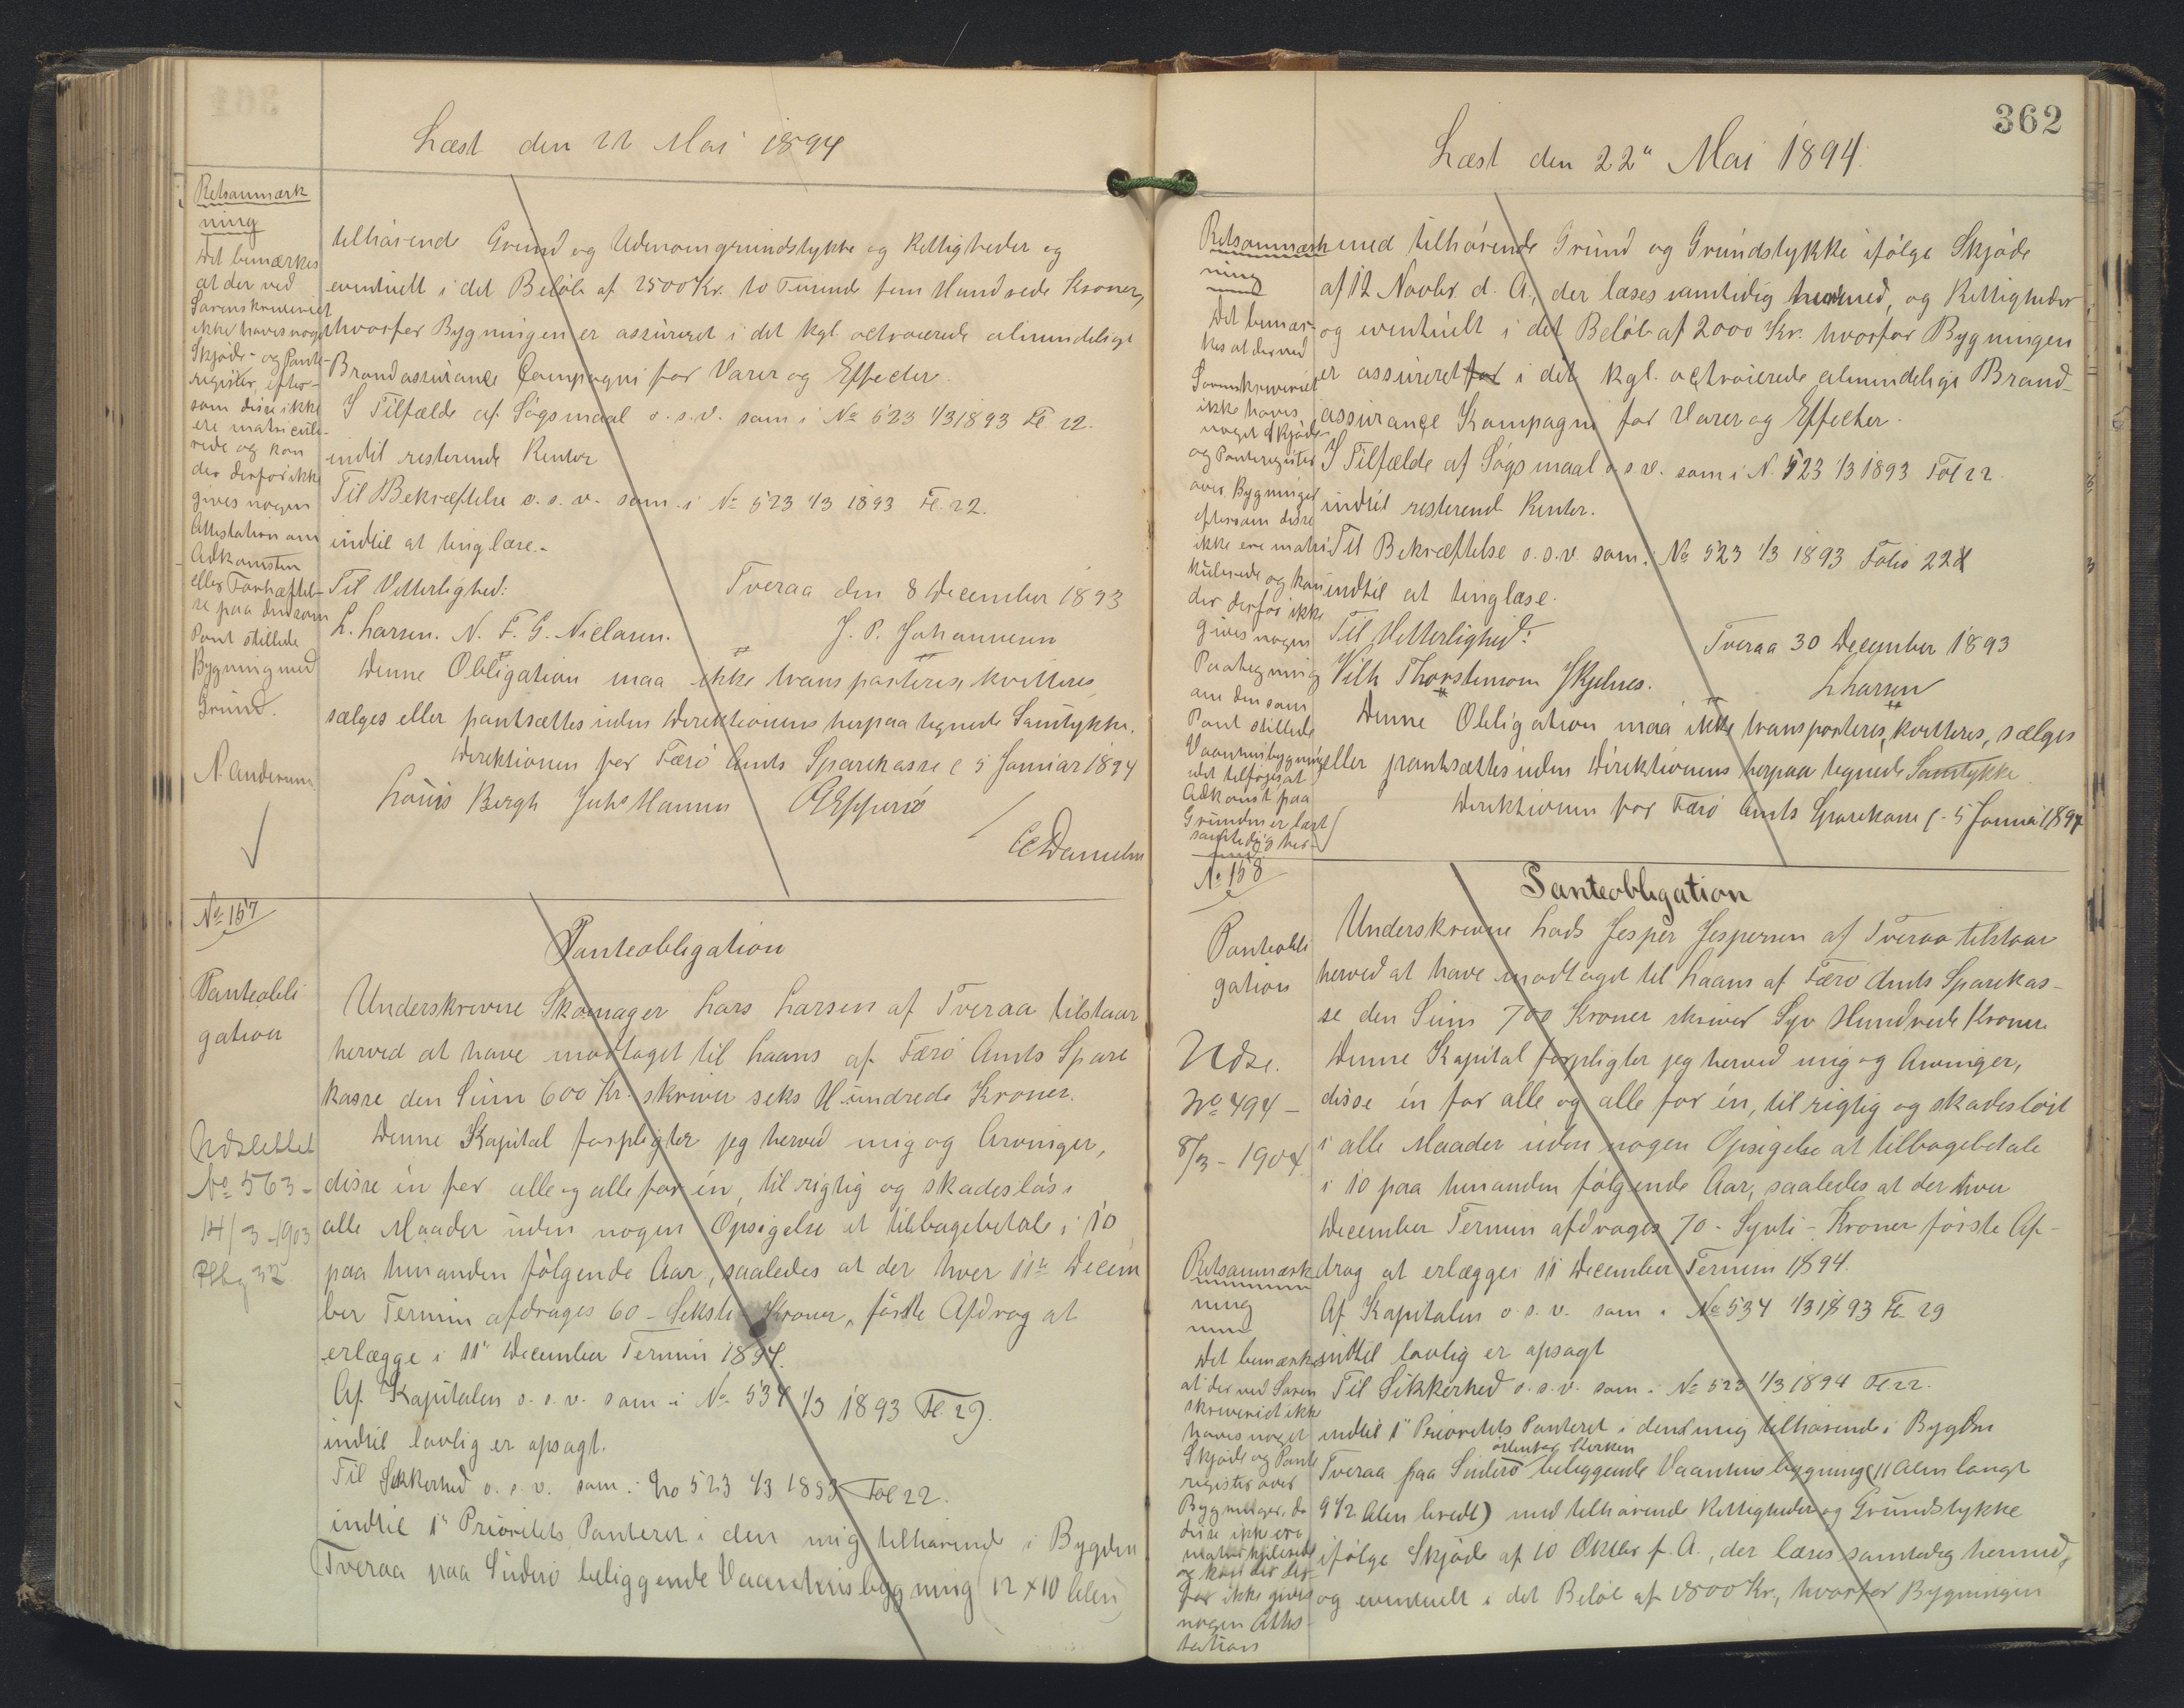 Læst den 22 Mai 1894
Retsanmærk
ning
Det bemærkes
at der ved
Sorenskriveriet
ikke haves noget
Skjøde- og Pante-
register, efter-
som disse ikke
ere matricule-
rede og kan
der derfor ikke
gives nogen
Attestation om
Adkomsten
eller Forhæftel-
se paa den som
Pant stillede
Bygning med
Grund.
N Andersen
tilhørende Grund og Udenomgrundstykke og Rettigheder og
eventuelt i det Beløb af 2500 Kr. to Tusinde fem Hundrede Kroner,
hvorfor Bygningen er assureret i det kgl. octroierede almindelige
Brandassurance Compagni for Varer og Effecter.
I Tilfælde af Søgsmaal o.s.v. som i No 523 1/3 1893 Fl. 22.
indtil resterende Renter
Til Bekræftelse o.s.v. som i No 523 1/3 1893 Fl. 22.
indtil at tinglæse.
Til Vitterlighed: Tveraa den 8 December 1893
L. Larsen. N. F. G. Nielsen. J. P. Johannesen
Denne Obligation maa ikke transporteres, kvitteres,
sælges eller pantsættes uden Direktionens herpaa tegnede Samtykke.
Direktionen for Færø Amts Sparekasse 5 Januar 1894
Louis Bergh Johs Hansen
CC Danielsen
No 157
Panteobli
gation
Udslettet
No 563-
14/3-1903
Panteobligation
Underskrevne Skomager Lars Larsen af Tveraa tilstaar
herved at have modtaget til Laans af Færø Amts Spare
kasse den Sum 600 Kr. skriver seks Hundrede Kroner.
Denne Kapital forpligter jeg herved mig og Arvinger,
disse én for alle og alle for én, til rigtig og skadesløs i
alle Maader uden nogen Opsigelse at tilbagebetale i 10
paa hinanden følgende Aar, saaledes at der hver 11te Decem
ber Termin afdrages 60 - Seksti Kroner, første Afdrag at
erlægge i 11" December Termin 1894.
Af Kapitalen o.s.v. som i No 534 1/3 1893 Fl. 29.
indtil lovlig er opsagt.
Til Sikkerhed o.s.v. som i No 523 1/3 1893 Fol 22.
indtil 1" Prioritets Panteret i den mig tilhørende i Bygden
Tveraa paa Suderø beliggende Vaanhusbygning (12 x 10 Alen)
362
Læst den 22" Mai 1894.
Retsanmærk
ning
Det bemær-
kes at der ved
Sorenskriveriet
ikke haves
noget Skjøde-
og Panteregister
over Bygninger
eftersom disse
ikke ere matri
kulerede og kan
der derfor ikke
gives nogen
Paategning
om den som
Pant stillede
Vaanhusbygning
idet tilføjes at
Adkomst paa
Grunden er læst
samtidig her-
med
med tilhørende Grund og Grundstykke ifølge Skjøde
af 12 Novbr. d. A., der læses samtidig hermed, og Rettigheder
og eventuelt i det Beløb af 2000 Kr. hvorfor Bygningen
er assureret for i det kgl. octroierede almindelige Brand-
assurance Kompagni for Varer og Effecter.
I Tilfælde af Søgsmaal o.s.v. som i N. 523 1/3 1893 Fol 22.
indtil resterende Renter.
Til Bekræftelse o.s.v. som i No 523 1/3 1893 Folio 22
indtil at tinglæse.
Til Vitterlighed: Tveraa 30 December 1893
Vilh Thorsteinson JKjelnes. L Larsen
Denne Obligation maa ikke transporteres, kvitteres, sælges
eller pantsættes uden Direktionens herpaa tegnede Samtykke.
Direktionen for Færø Amts Sparekasse 5 Januar 1894
No 158
Panteobli
gation
Udsl.
No 494-
8/3-1904.
Panteobligation
Underskrevne Lads Jesper Jespersen af Tveraa tilstaar
herved at have modtaget til Laans af Færø Amts Sparekas-
se den Sum 700 Kroner skriver Syv Hundrede Kroner.
Denne Kapital forpligter jeg herved mig og Arvinger,
disse én for alle og alle for én, til rigtig og skadesløst
i alle Maader uden nogen Opsigelse at tilbagebetale
i 10 paa hinanden følgende Aar, saaledes at der hver
December Termin afdrages 70 - Sytti - Kroner første Af-
drag at erlægges 11 December Termin 1894.
Af Kapitalen o.s.v. som i No 534 1/3 1893 Fl. 29
indtil lovlig er opsagt
Til Sikkerhed o.s.v. som i No 523 1/3 1894 Fl. 22.
indtil 1" Prioritets Panteret i den mig tilhørende i Bygden
østenfor Kirken
Tveraa paa Suderø beliggende Vaanhusbygning (11 Alen langt
9 1/2 Alen bredt) med tilhørende Rettigheder og Grundstykke
ifølge Skjøde af 10 Oktbr f. A., der læses samtidig hermed,
og eventuelt i det Beløb af 1800 Kr., hvorfor Bygningen
Retsanmærk
ning
Det bemærkes
at der ved Soren
skriveriet ikke
haves noget
Skjøde og Pante
register over
Bygninger, da
disse ikke ere
matrikulerede
og kan der der-
for ikke gives
nogen Attes-
tation